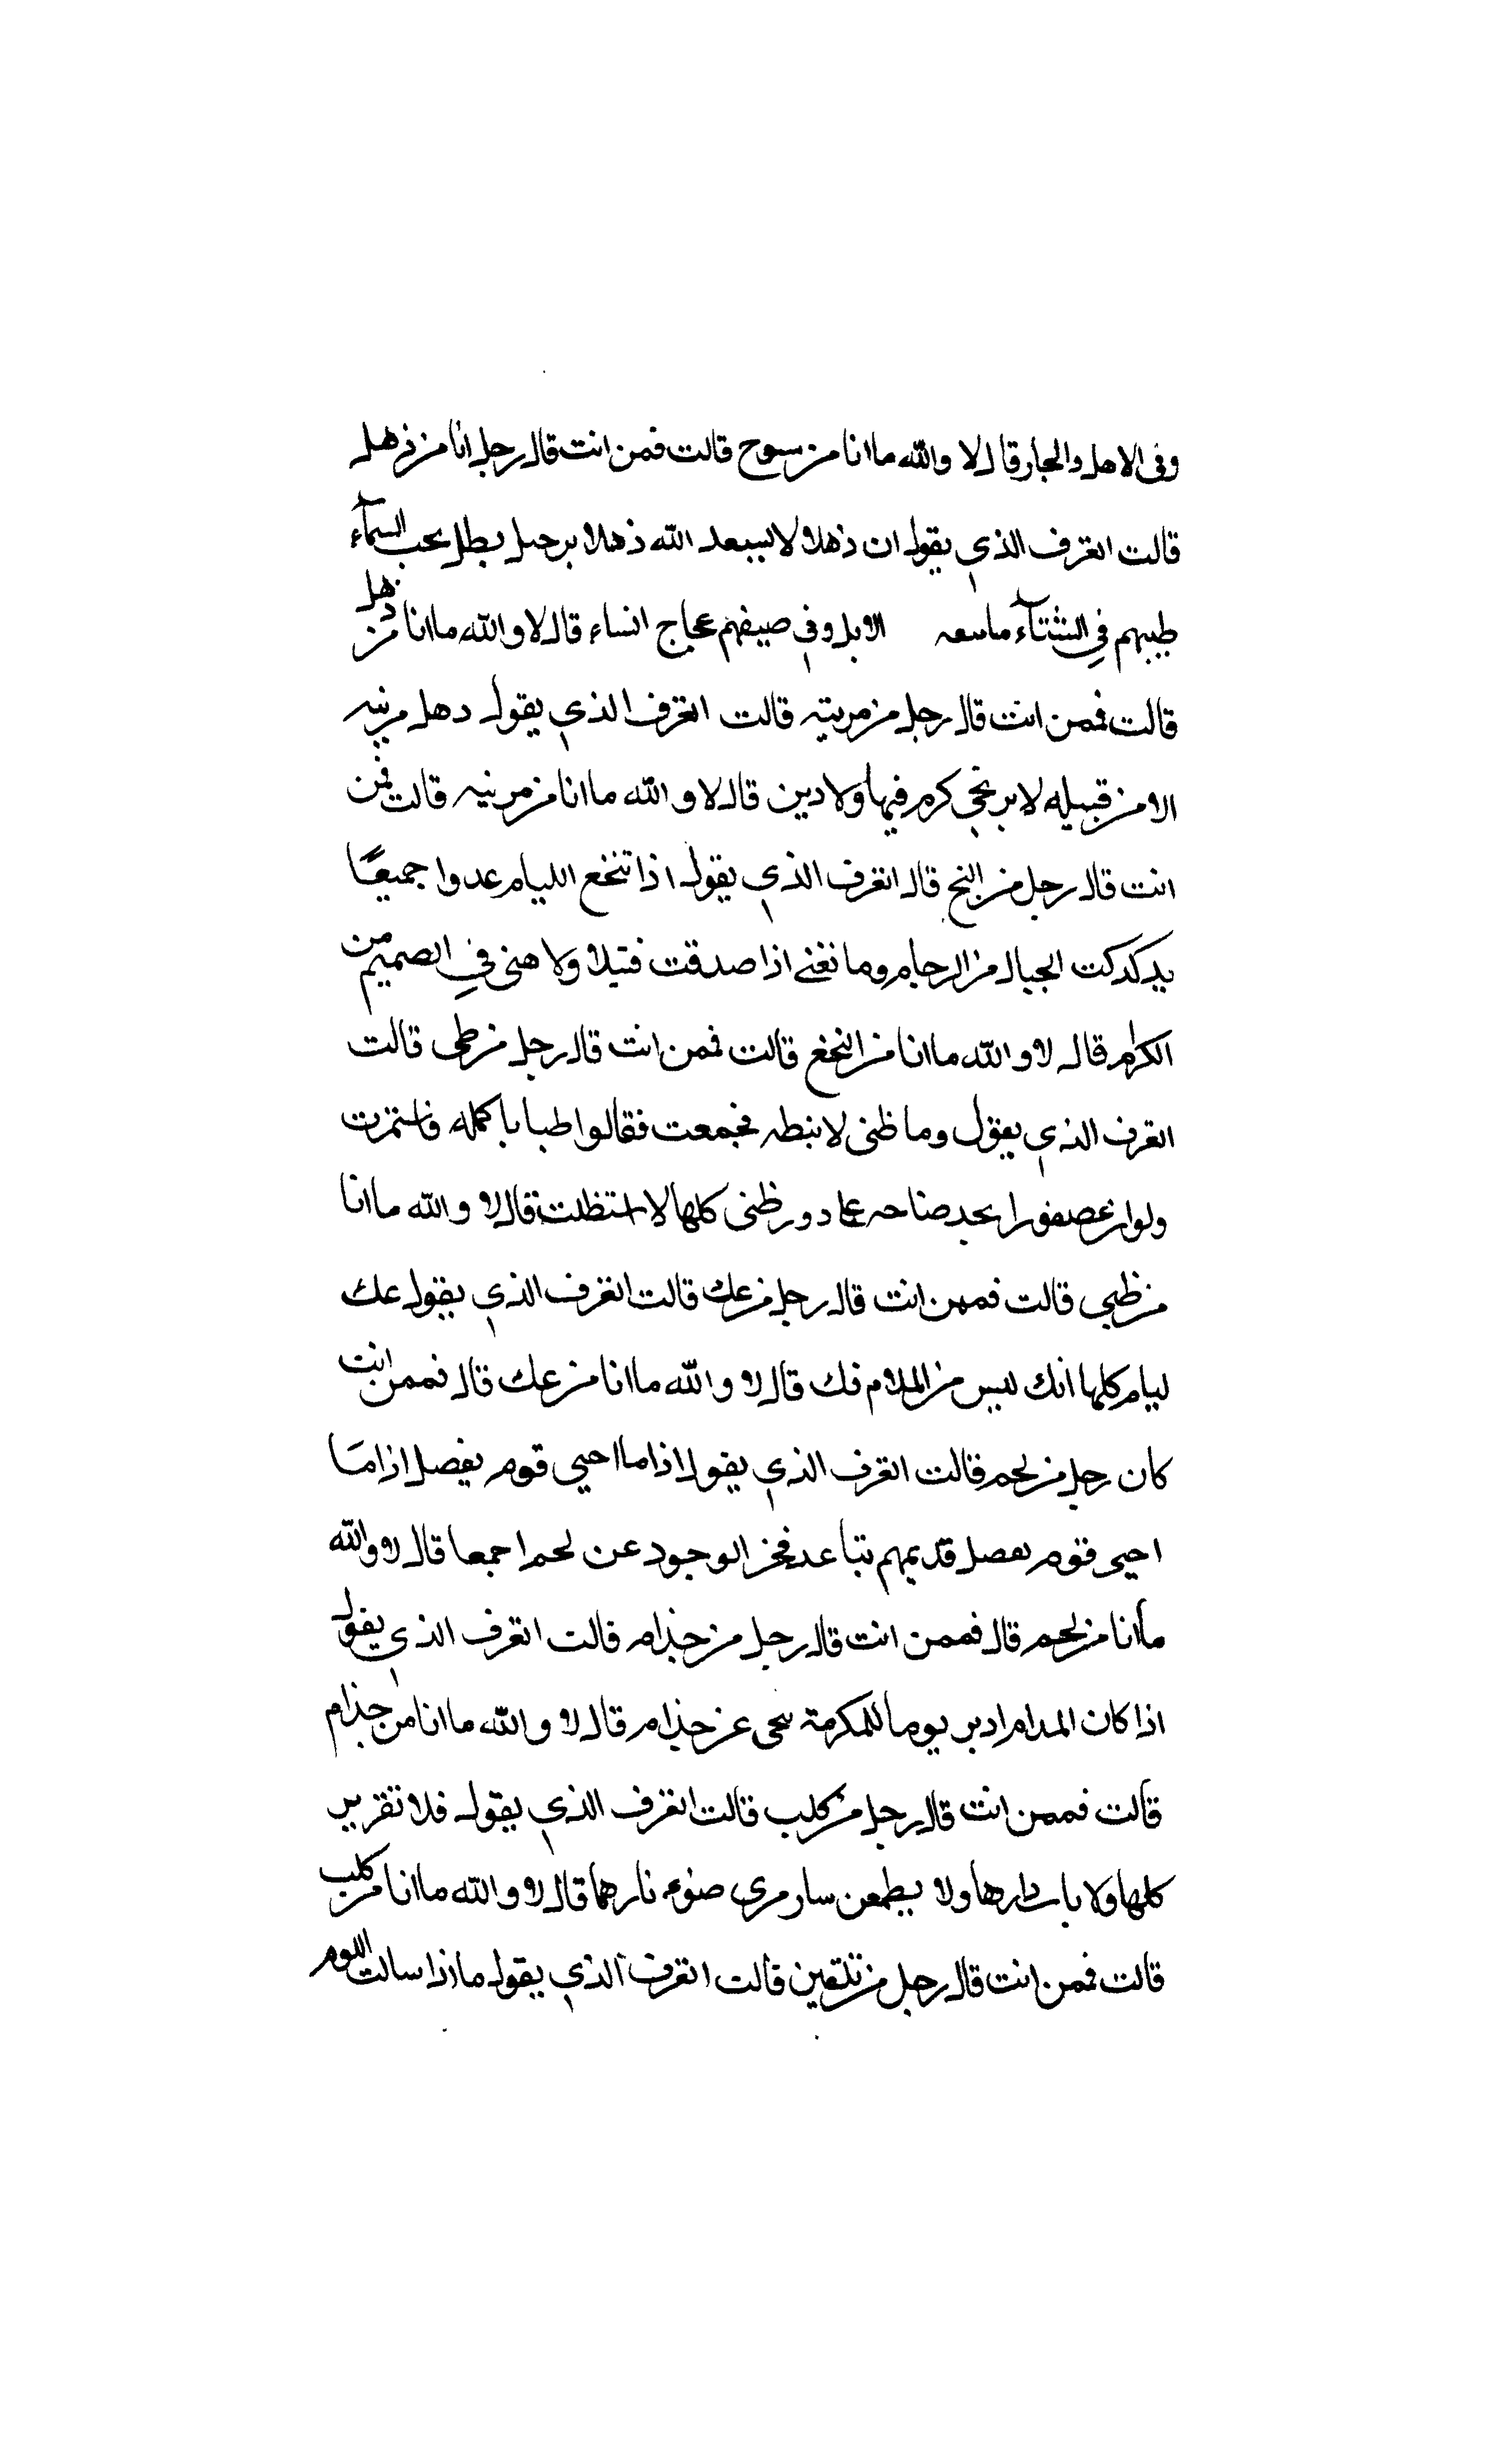 وفى الاهل والجار قال لا والله ما انا من سوح قالت فمن انت قال رجل انا من ذهل
قالت اتعرف الذي يقول ان ذهلا لا يسعد الله ذهلا برحل بطل تحب السمآء
طيبهم في الشتآء ماسعه الابل وفي صيفهم عجاج انساء قال لا والله ما انا من ذهل
قالت فممن انت قال رجل من مرنيه قالت اتعرف الذي يقول دهل مرنيه
الا من قبيله لا يرتجي كرم فيها ولا دين قال لا والله ما انا من مرنيه قالت فمن
انت قال رجل من النخع قال اتعرف الذي يقول اذا تنخع الليام عدوا جميعًا
يدكدكت الجبال من الرحام وما نغنى اذا صدقت فتيلا ولا هنى في الصميم من
الكرام قال لا والله ما انا من النخع قالت فممن انت قال رجل من طى قالت
اتعرف الذي يقول وما ظنى لا نبطه تجمعت فقالوا طبا باكمله فاستمرت
ولوان عصفورا يمد صناحه على دور ظنى كلها لا استظلت قال لا والله ما انا
من ظبي قالت فممن انت قال رجل من عك قالت اتعرف الذي يقول عك
ليام كلها انك ليس من الملام فك قال لا والله ما انا من عك قال فممن انت
كان رجل من لحم قالت اتعرف الذي يقول اذا ما احيى قوم بفصل اذا ما
احيى قوم بفصل قديمهم تباعد فخر الوجود عن لحم اجمعا قال لا والله
ما انا من لحم قال فممن انت قال رجل من جذام قالت اتعرف الذي يقول
اذا كان المدام ادير يوما للمكرمة سحى عن جذام قال لا والله ما انا من جذام
قالت فممن انت قال رجل من كلب قالت اتعرف الذي يقول فلا تقربن
كلها ولا باب دارها ولا يطمعن سار مرى صنوء نارها قال لا والله ما انا من كلب
قالت فممن انت قال رجل من تلقين قالت اتعرف الذي يقول ما اذا سالت اللوم